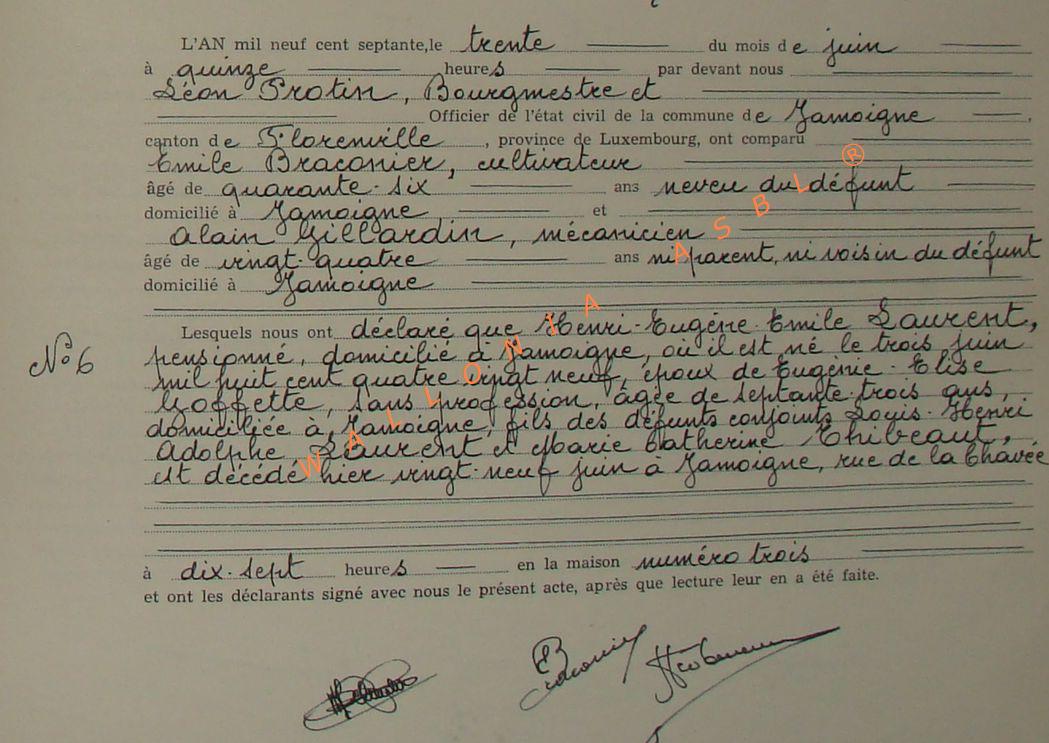 L'AN mil neuf cent septante, le trente du mois de juin
à quinze heures par devant nous
Léon Protin, Bourgmestre et
Officier de l'état civil de la commune de Jamoigne
canton de Florenville, province de Luxembourg, ont comparu
Emile Braconier, cultivateur
âgé de quarante-six ans neveu du défunt
domicilié à Jamoigne et
Alain Gillardin, mécanicien
âgé de vingt-quatre ans ni parent, ni voisin du défunt
domicilié à Jamoigne
Lesquels nous ont déclaré que Henri-Eugène-Emile Laurent,
N° 6
pensionné, domicilié à Jamoigne, où il est né le trois juin
mil huit cent quatre vingt neuf, époux de Eugénie-Elise
Goffette, sans profession, âgée de septante-trois ans,
domiciliée à Jamoigne, fils des défunts conjoints Louis-Henri
Adolphe Laurent et Marie Catherine Thibeaut,
est décédé hier vingt-neuf juin à Jamoigne, rue de la Chavée
à dix-sept heures en la maison numéro trois
et ont les déclarants signé avec nous le présent acte, après que lecture leur en a été faite.
WALLONIA ASBL ®